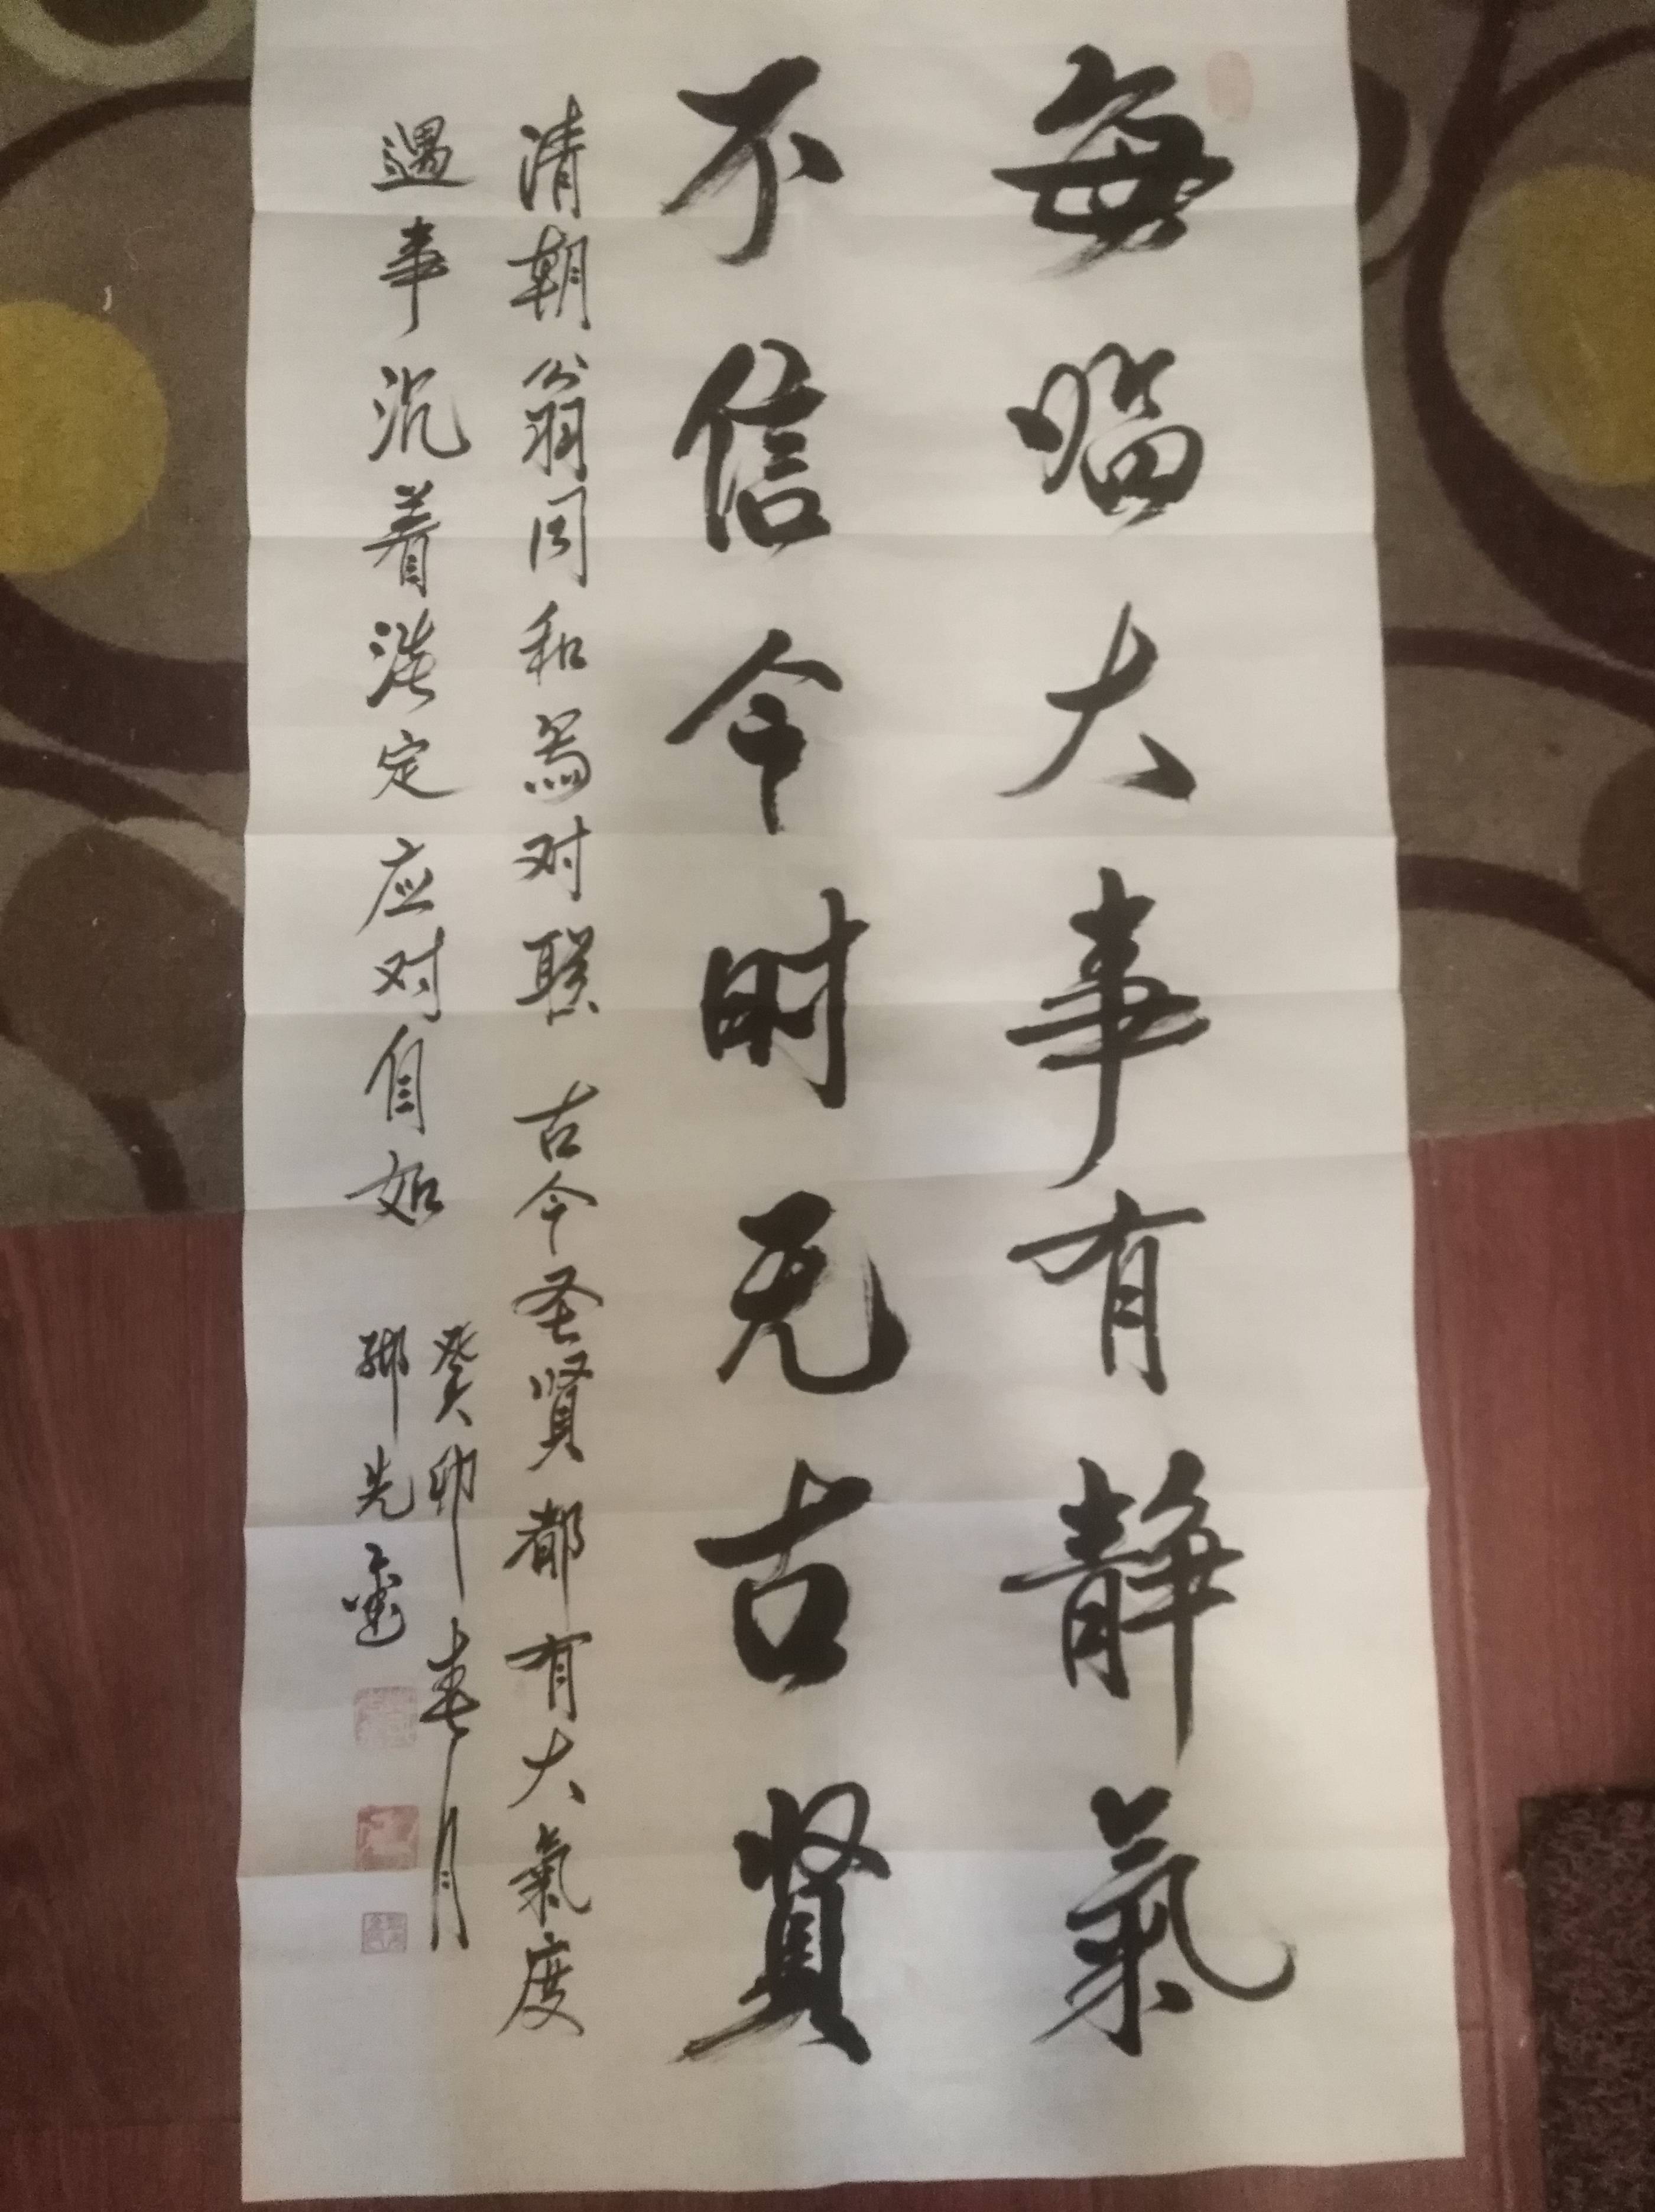 每临大事有静氣
不信今时无古贤
清朝翁同和写对联 古今圣贤都有大氣度
遇事沉着淡定应对自如
癸卯春月
先